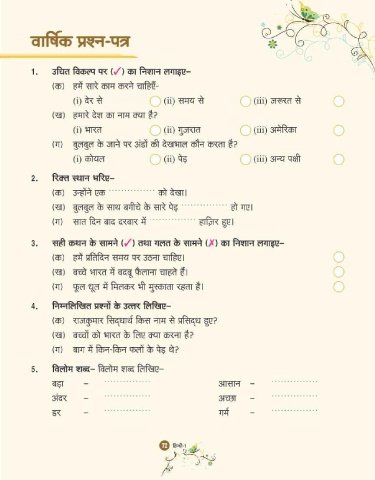 वार्षिक प्रश्न-पत्र
1. उचित विकल्प पर (✓) का निशान लगाइए–
(क) हमें सारे काम करने चाहिएँ–
(i) देर से (ii) समय से (iii) जरूरत से
(ख) हमारे देश का नाम क्या है?
(i) भारत (ii) गुजरात (iii) अमेरिका
(ग) बुलबुल के जाने पर अंडों की देखभाल कौन करता है?
(i) कोयल (ii) पेड़ (iii) अन्य पक्षी
2. रिक्त स्थान भरिए–
(क) उन्होंने एक .............. को देखा।
(ख) बुलबुल के साथ बगीचे के सारे पेड़ .............. हो गए।
(ग) सात दिन बाद दरबार में .............. हाज़िर हुए।
3. सही कथन के सामने (✓) तथा गलत के सामने (✗) का निशान लगाइए–
(क) हमें प्रतिदिन समय पर उठना चाहिए।
(ख) बच्चे भारत में बदबू फैलाना चाहते हैं।
(ग) फूल धूल में मिलकर भी मुस्काता रहता है।
4. निम्नलिखित प्रश्नों के उत्तर लिखिए–
(क) राजकुमार सिद्धार्थ किस नाम से प्रसिद्ध हुए?
(ख) बच्चों को भारत के लिए क्या करना है?
(ग) बाग में किन-किन फलों के पेड़ थे?
5. विलोम शब्द– विलोम शब्द लिखिए–
बड़ा – .............. आसान – ..............
अंदर – .............. अच्छा – ..............
डर – .............. गर्म – ..............
72 हिन्दी-1